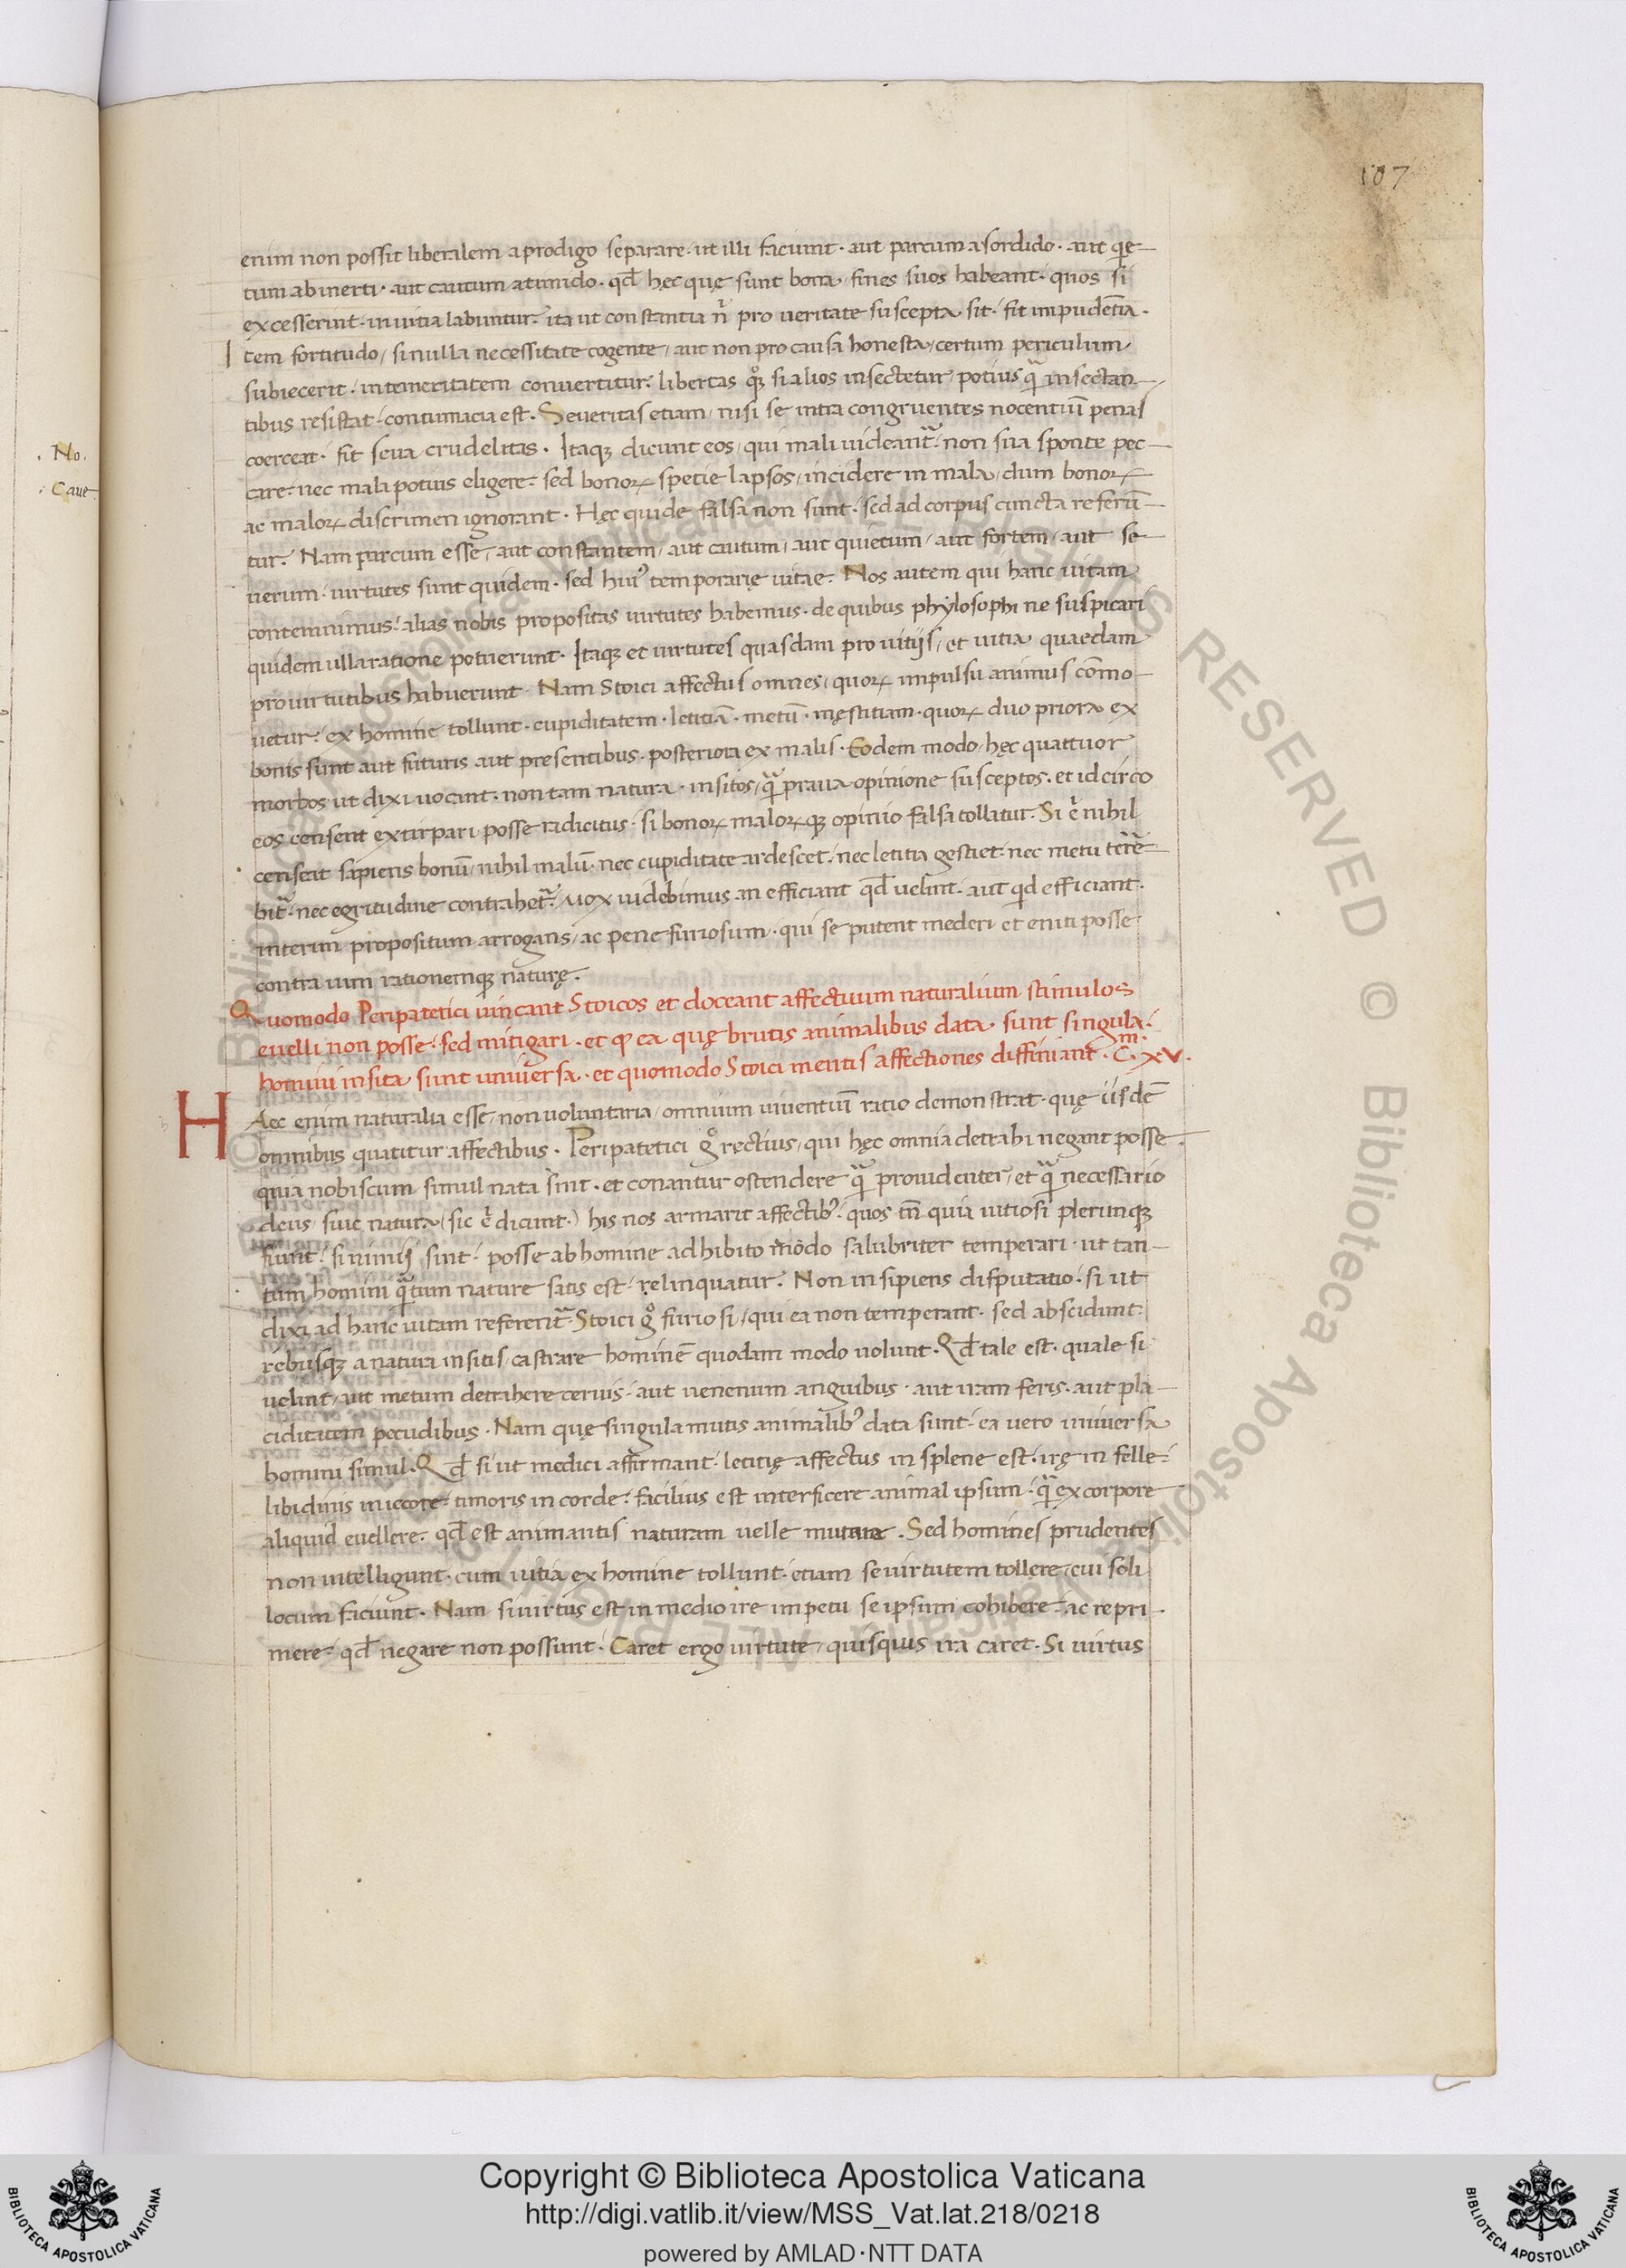 107
enim non possit liberalem a prodigo separare· ut illi faciunt· aut parcum a sordido· aut qe-
tum ab inerti· aut cautum a timido· qđ hęc quę sunt bona, fines suos habeant· quos si
excesserint· in uitia labuntur· ita ut constantia nͥ pro ueritate suscepta sit· fit impudētia·
Item fortitudo, si nulla necessitate cogente, aut non pro causa honesta, certum periculum,
subiecerit· in temeritatem conuertitur· libertas qꝫ si alios insectetur, potius qᷓ insectan-
tibus resistat· contumacia est· Seueritas etiam, nisi se intra congruentes nocentiū penas
coerceat· fit seua crudelitas· Itaqꝫ dicunt eos, qui mali uideantᷣ non sua sponte pec-
care· nec mala potius eligere· sed bonoꝝ specie lapsos, incidere in mala, dum bonoꝝ
ac maloꝝ discrimen ignorant· Hęc quidē falsa non sunt· sed ad corpus cuncta referū-
tur· Nam parcum esse, aut constantem, aut cautum, aut quietum, aut fortem, aut se-
uerum· uirtutes sunt quidem· sed huiꝰ temporarię uitae· Nos autem qui hanc uitam
contemnimus· alias nobis propositas uirtutes habemus· de quibus phylosophi ne suspicari
quidem ulla ratione potuerunt· Itaqꝫ et uirtutes quasdam pro uitijs, et uitia quaedam
pro uirtutibus habuerunt· Nam Stoici affectus omnes, quoꝝ impulsu animus cōmo-
uetur· ex homine tollunt· cupiditatem· letitiā· metū· męstitiam· quoꝝ duo priora ex
bonis sunt aut futuris aut presentibus· posteriora ex malis· Eodem modo, hęc quattuor
morbos ut dixi uocant· non tam natura insitos, qᷓ praua opinione susceptos· et idcirco
eos censent extirpari posse radicitus· si bonoꝝ maloꝝqꝫ opinio falsa tollatur· Si eͥ nihil
censeat sapiens bonū, nihil malū· nec cupiditate ardescet· nec letitia gestiet· nec metu terre-
bitᷣ· nec egritudine contrahetᷣ· Mox uidebimus an efficiant qđ uelint· aut qd efficiant·
interim propositum arrogans, ac pene furiosum· qui se putent mederi et eniti posse
contra uim rationemqꝫ naturę·
Quomodo Peripatetici uincant Stoicos et doceant affectuum naturalium stimulos
euelli non posse· sed mitigari· et ꝙ ea quę brutis animalibus data sunt singula·
homini insita sunt uniuersa· et quomodo Stoici mentis affectiones diffiniant· Cͫ· XV·
HAec enim naturalia esse, non uoluntaria, omnium uiuentiū ratio demonstrat· quę iisdē
omnibus quatitur affectibus· Peripatetici gͦ rectius, qui hęc omnia detrahi negant posse·
quia nobiscum simul nata sint· et conantur ostendere qᷓ prouidenter, et qᷓ necessario
deus, siue natura, (sic eͥ dicunt·) his nos armarit affectibꝰ· quos tn̄ quia uitiosi plerunqꝫ
fiunt· si nimij sint· posse ab homine adhibito modo salubriter temperari· ut tan-
tum homini qᷓtum nature satis est· relinquatur· Non insipiens disputatio· si ut
dixi ad hanc uitam referentᷣ· Stoici gͦ furiosi, qui ea non temperant· sed abscidunt·
rebusqꝫ a natura insitis, castrare hominē quodam modo uolunt· Qđ tale est· quale si
uelint, aut metum detrahere ceruis· aut uenenum anguibus· aut iram feris· aut pla-
ciditatem pecudibus· Nam quę singula mutis animalibꝰ data sunt· ea uero uniuersa
homini simul· Qđ si ut medici affirmant· letitię affectus in splene est· irę in felle·
libidinis in iecore· timoris in corde· facilius est interficere animal ipsum· qᷓ ex corpore
aliquid euellere· qđ est animantis naturam uelle mutare· Sed homines prudentes
non intelligunt· cum uitia ex homine tollunt· etiam se uirtutem tollere, cui soli
locum faciunt· Nam si uirtus est in medio ire impetu se ipsum cohibere· ac repri-
mere· qđ negare non possunt· Caret ergo uirtute, quisquis ira caret· Si uirtus
·No·
·Caue
© Biblioteca Apostolica Vaticana ALL RIGHTS RESERVED
Copyright © Biblioteca Apostolica Vaticana
http://digi.vatlib.it/view/MSS_Vat.lat.218/0218
powered by AMLAD·NTT DATA
BIBLIOTECA APOSTOLICA VATICANA
BIBLIOTECA APOSTOLICA VATICANA